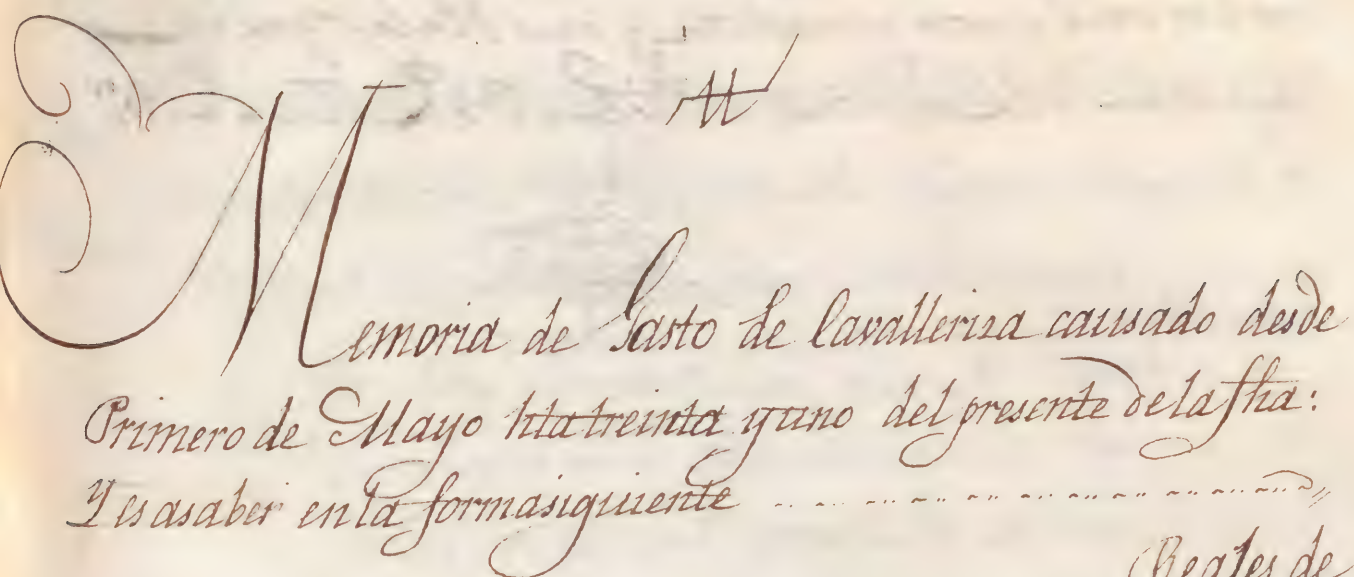 Memoria de Gasto de Cavalleriza causado desde
Primero de Mayo hta treinta y uno del presente dela fha:
Y es asaber en la forma siguiente
Reales de